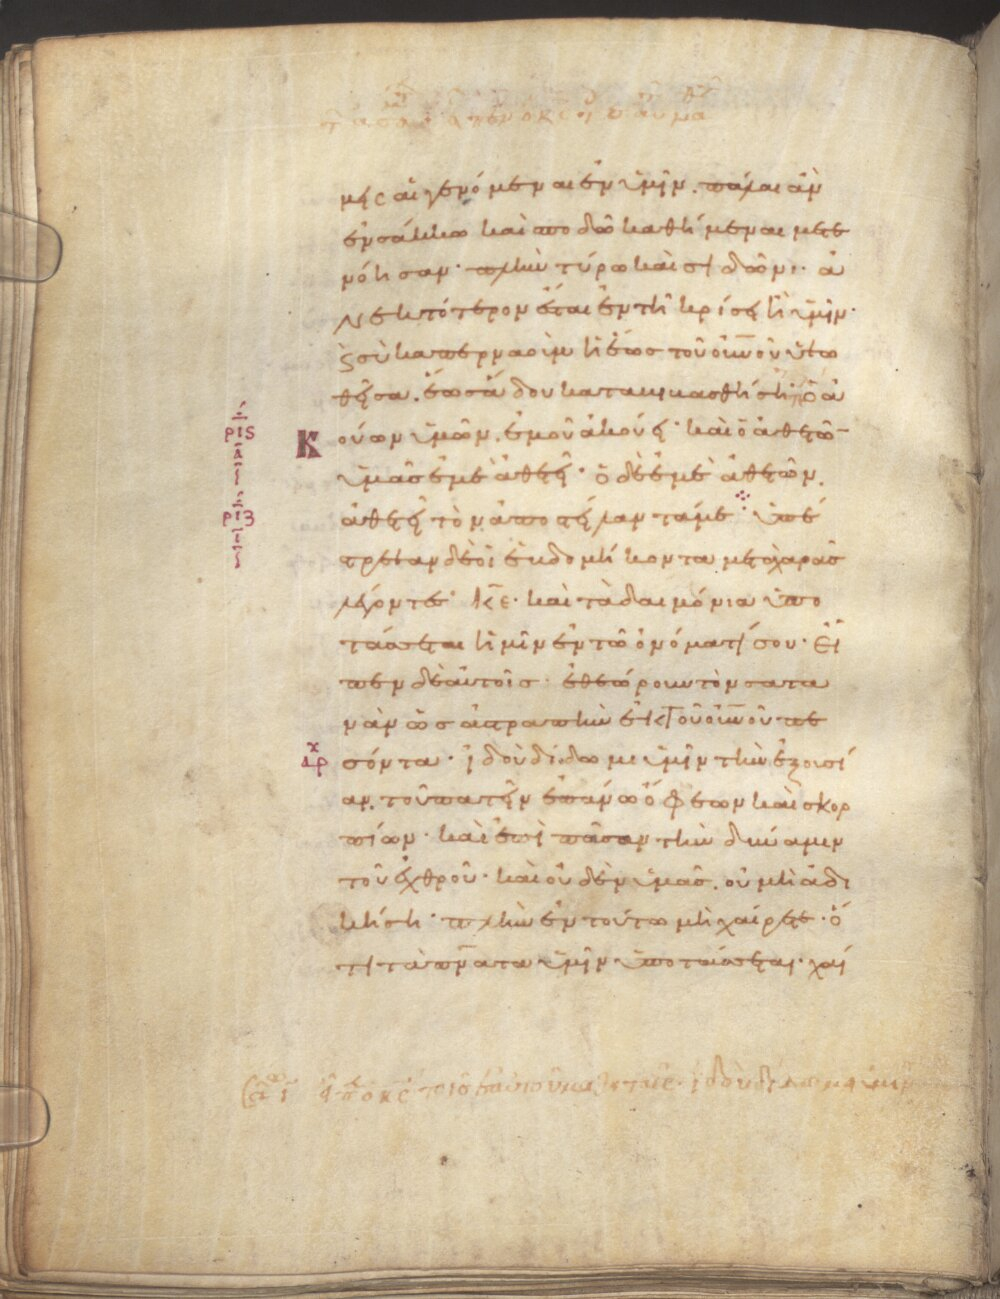 μεις αἱ γενόμεναι ἐν ὑμῖν. πάλαι ἂν
ἐν σάκκω καὶ σποδῶ καθήμεναι μετε
νόησαν· πλὴν τύρω καὶ σιδῶνι· ἀ
νεκτότερον ἔσται ἐν τῆ κρίσει ἢ ὑμῖν·
καὶ σὺ καπερναοὺμ ἡ ἕως τοῦ οὐνοῦ ὑψω
θεῖσα. ἕως ἅδου καταβιβασθήση· ὁ ἀ
κούων ὑμῶν. ἐμοῦ ἀκούει· καὶ ὁ ἀθετῶν
ὑμᾶς ἐμὲ ἀθετεῖ· ὁ δὲ ἐμὲ ἀθετῶν.
ἀθετεῖ τὸν ἀποστείλαντά με· ὑπέ
στρεψαν δὲ οἱ ἑβδομήκοντα μετὰ χαρᾶς
λέγοντες· κε· καὶ τὰ δαιμόνια ὑπο
τάσσεται ἡμῖν ἐν τῶ ὀνόματί σου· εἶ
πεν δὲ αὐτοῖς· ἐθεώρουν τὸν σατα
νᾶν ὡς ἀστραπὴν ἐκ τοῦ οὐνοῦ πε
σόντα· ἰδοὺ δίδωμι ὑμῖν τὴν ἐξουσί
αν. τοῦ πατεῖν ἐπάνω ὄφεων καὶ σκορ
πίων· καὶ ἐπὶ πᾶσαν τὴν δύναμιν
τοῦ ἐχθροῦ· καὶ οὐδὲν ὑμᾶς. οὐ μὴ ἀδι
κήση· πλὴν ἐν τούτω μὴ χαίρετε· ὅ
τι τὰ πνατα ὑμῖν ὑποτάσσεται· χαί